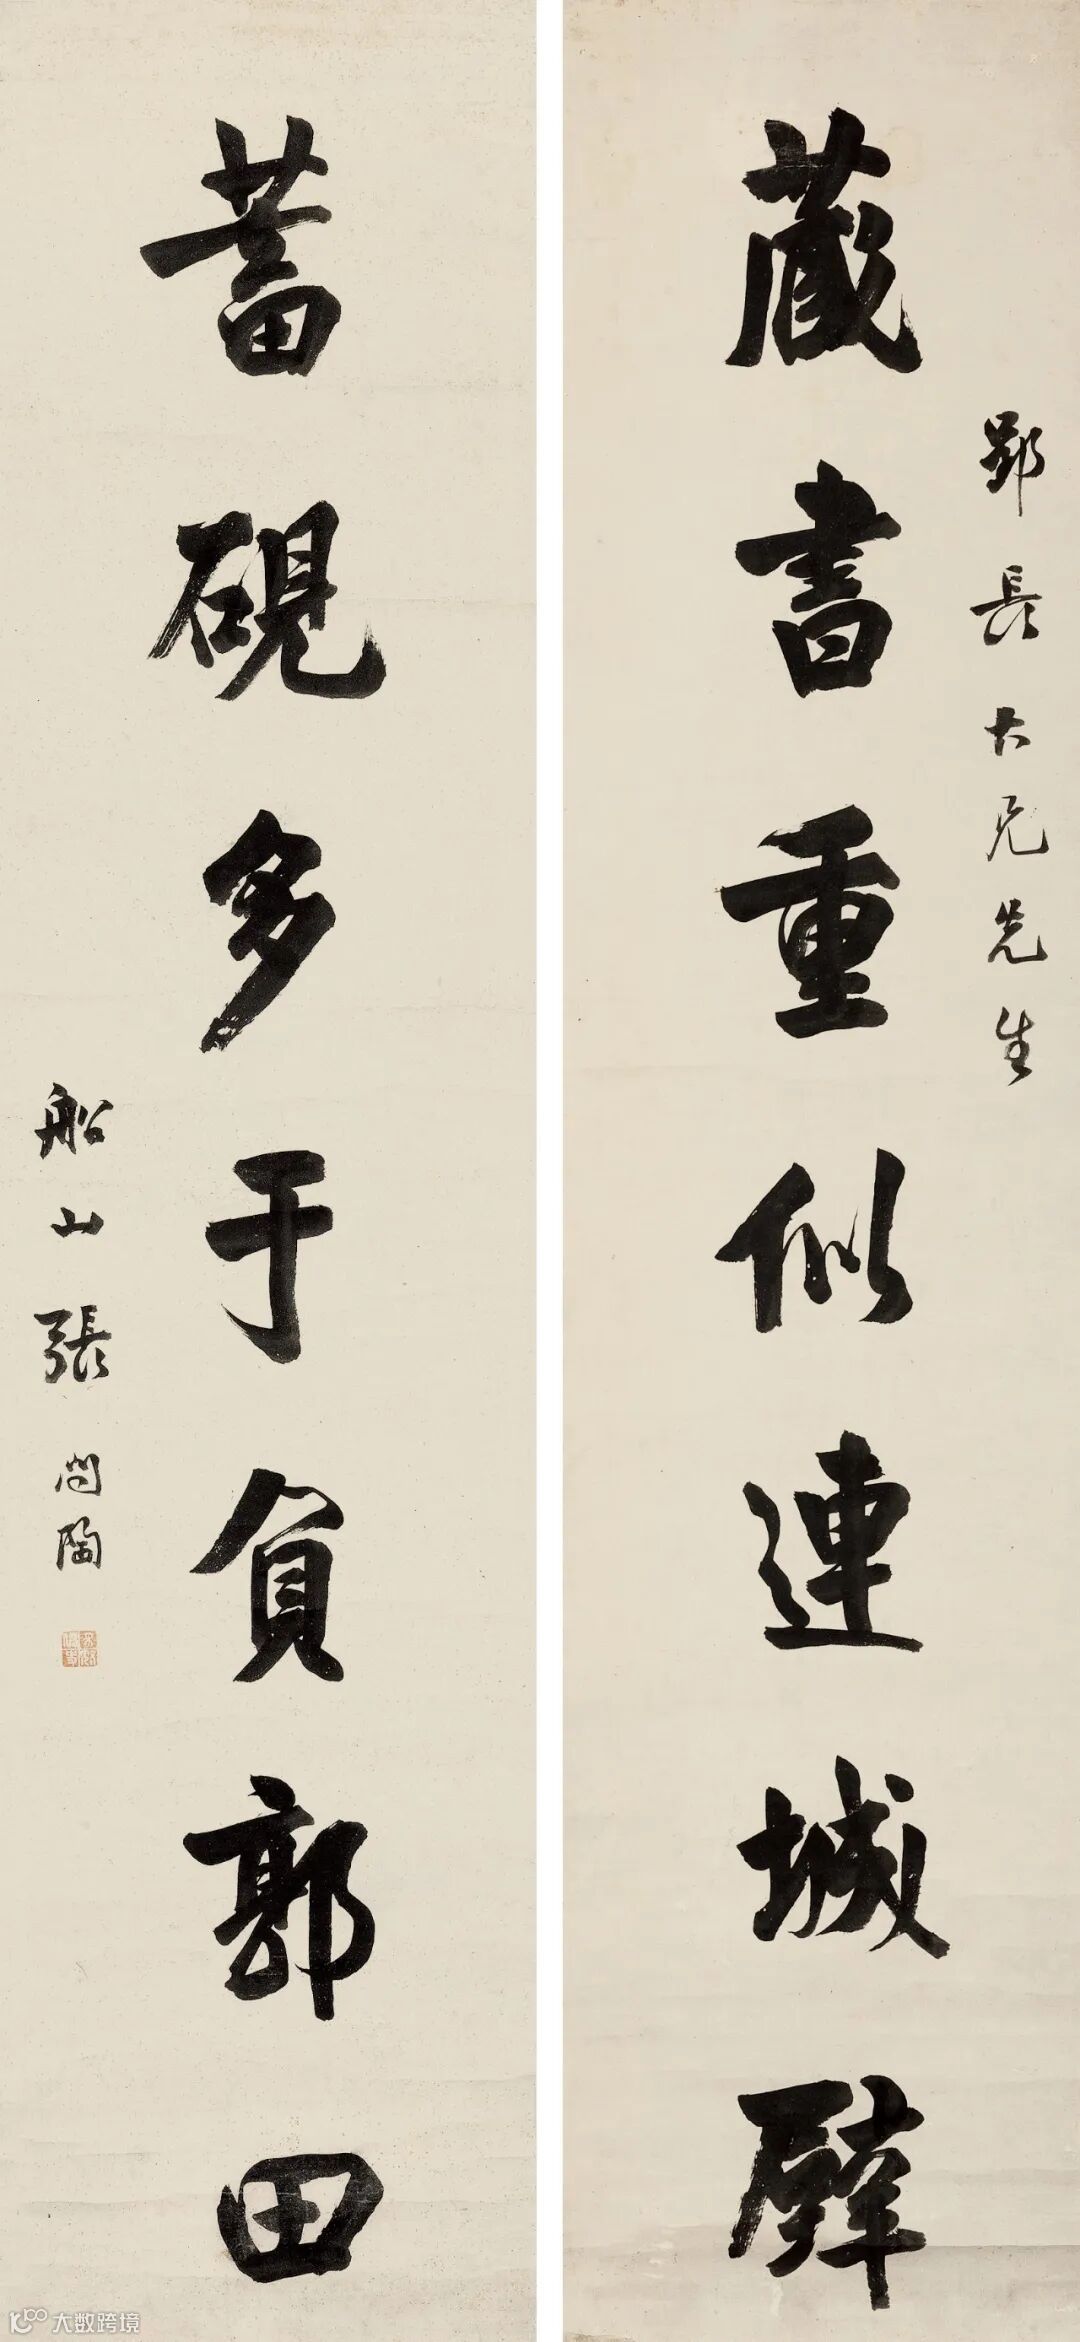 藏書重似連城璧
郢長大兄先生
蓄硯多于負郭田
船山張問陶
大数跨境